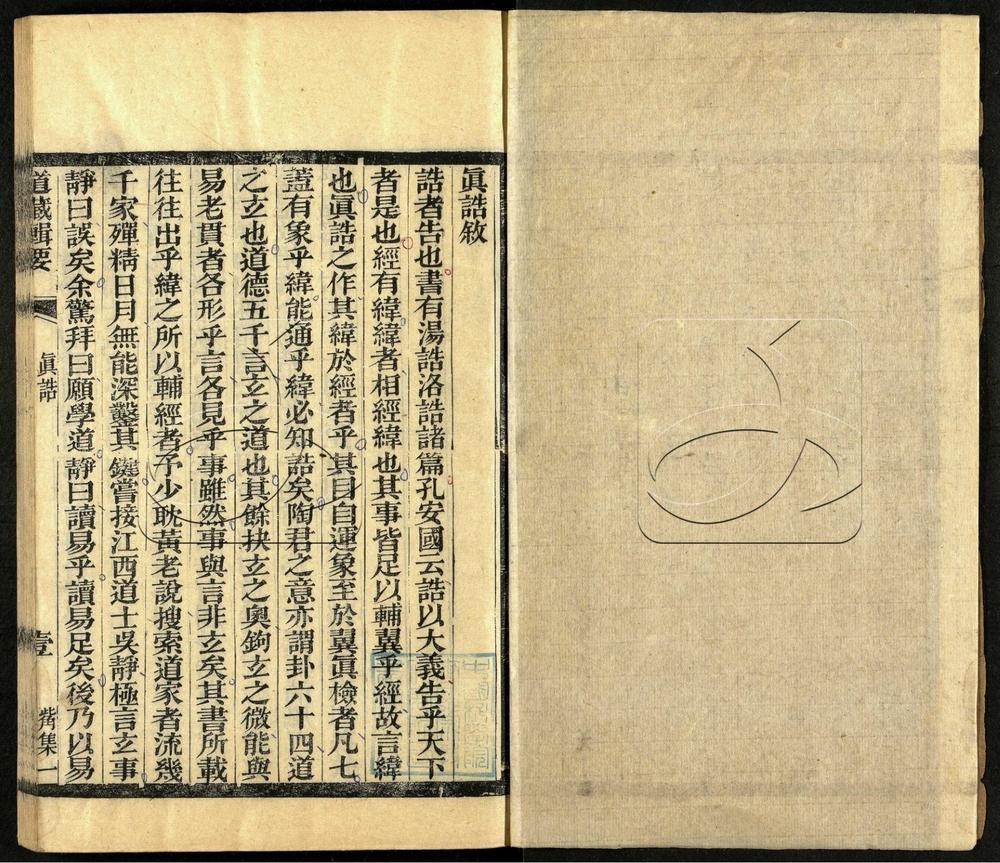 眞誥敘
誥者告也書有湯誥洛誥諸篇孔安國云誥以大義告乎天下
者是也經有緯緯者相經緯也其事皆足以輔翼乎經故言緯
也眞誥之作其緯於經者乎其目自運象至於翼眞檢者凡七
蓋有象乎緯能通乎緯必知誥矣陶君之意亦謂卦六十四道
之玄也道德五千言玄之道也其餘抉玄之奧鉤玄之微能與
易老貫者各形乎言各見乎事雖然事與言非玄矣其書所載
往往出乎緯之所以輔經者予少耽黃老說搜索道家者流幾
千家殫精日月無能深鑿其鍵嘗接江西道士吳靜極言玄事
靜曰誤矣余驚拜曰願學道靜曰讀易乎讀易足矣後乃以易
道藏輯要
眞誥
壹
觜集一